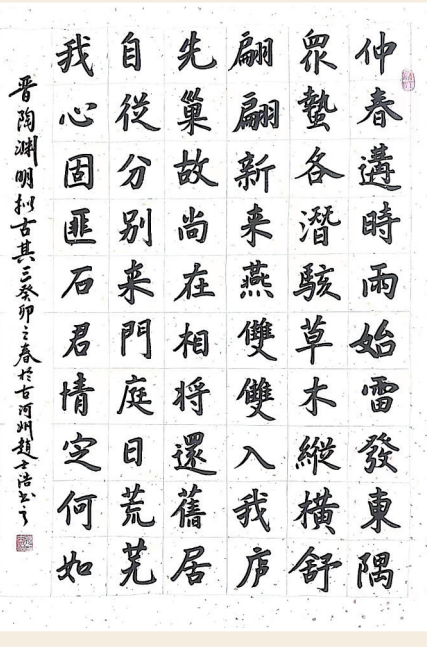 仲春遘時雨始雷發東隅
眾蟄各潛駭草木縱橫舒
翩翩新来燕雙雙入我庐
先巢故尚在相将還舊居
自從分别来門庭日荒芜
我心固匪石君情定何如
晉陶渊明拟古其三癸卯之春於古河州趙士浩书之